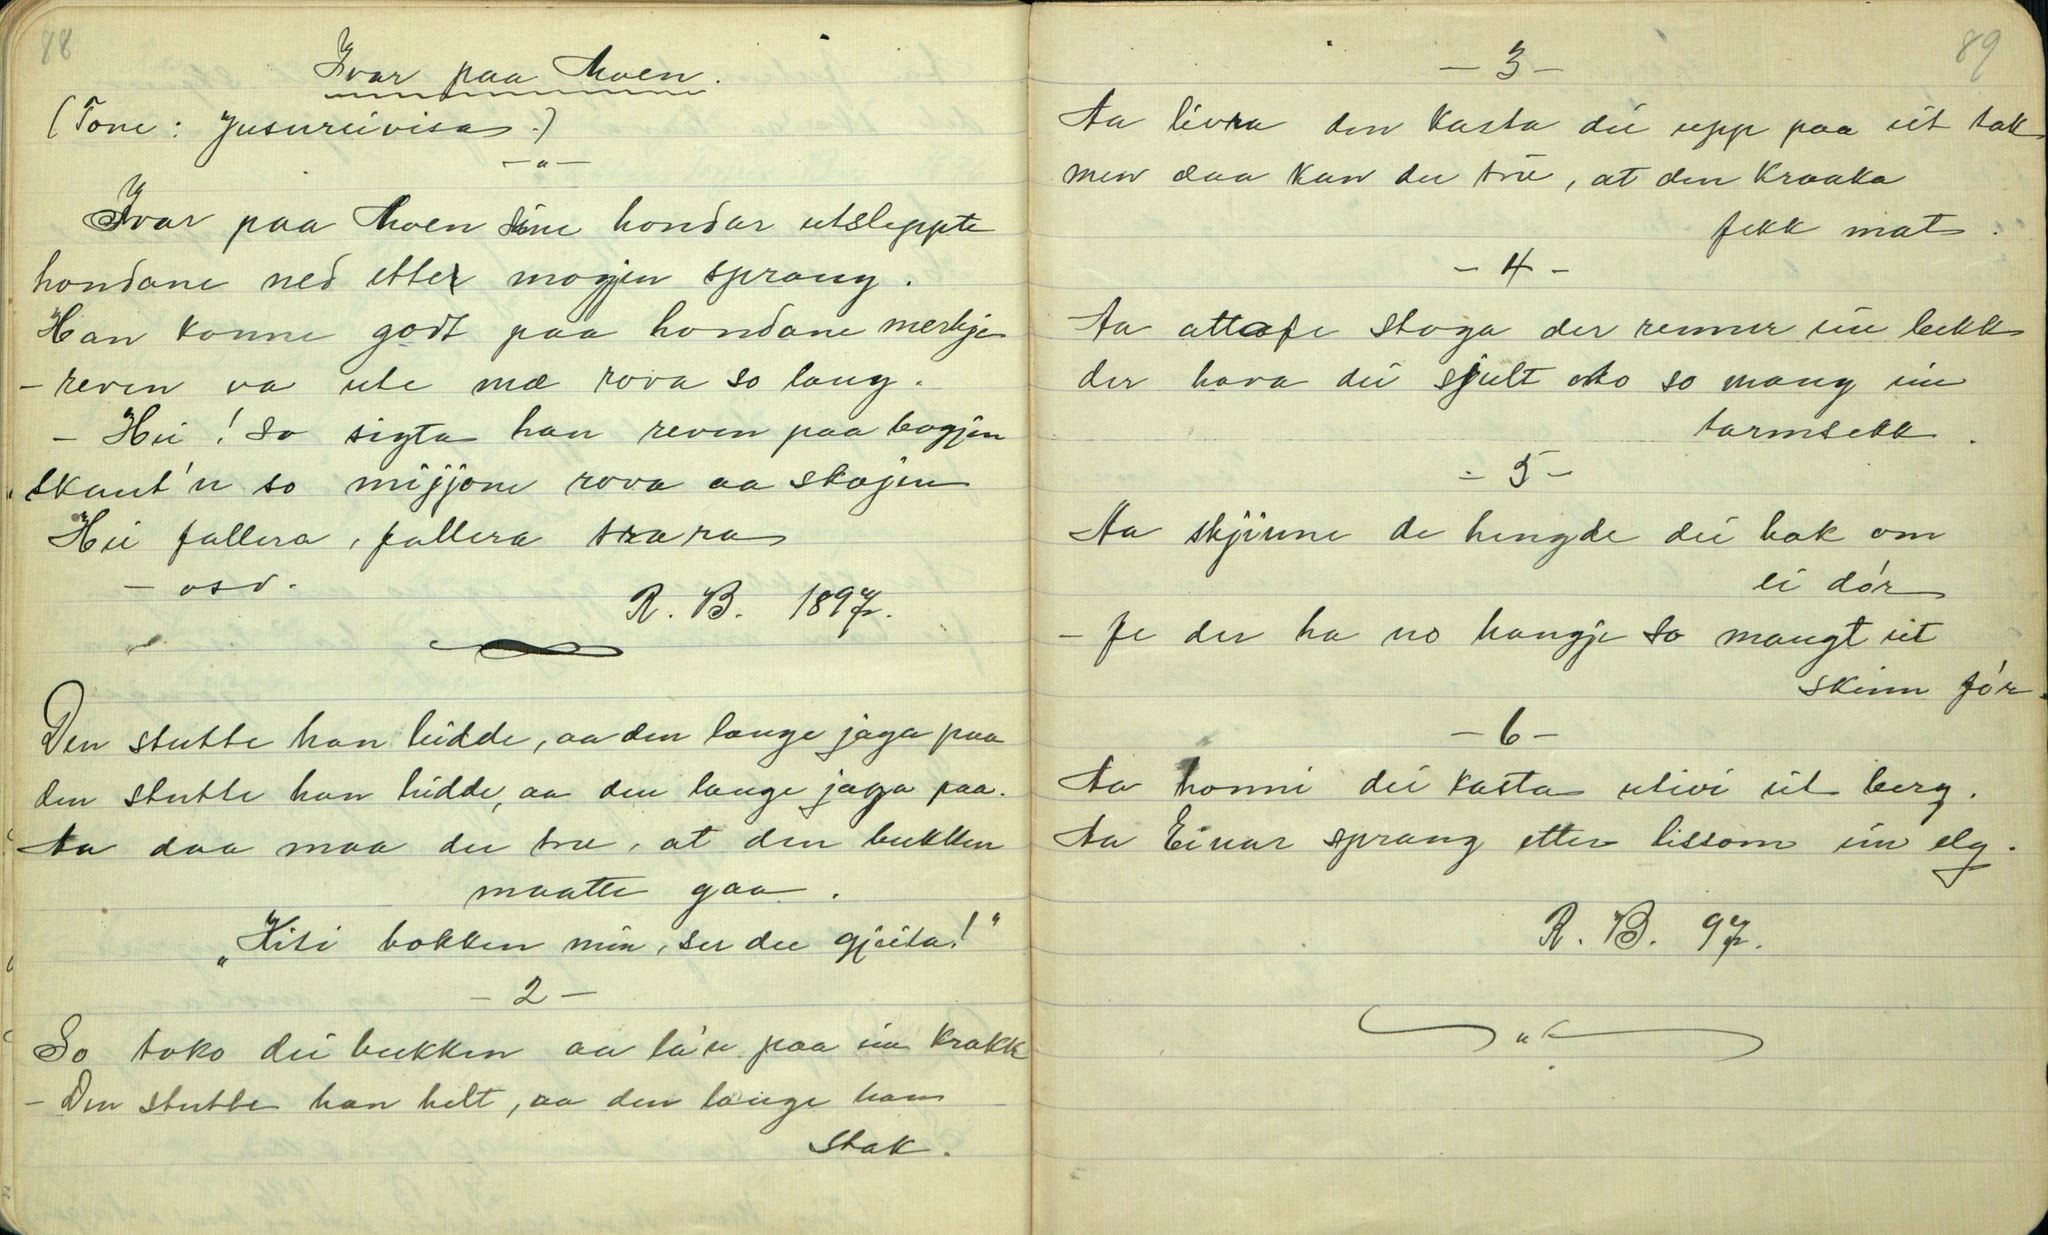 88
Ivar paa Moen.
(Tone: Jusureivisa.)
Ivar paa Moen sine hondar utsleppte
hondane ned etter mogjen sprang.
Han konne godt paa hondane merkje
- reven va ute mæ rova so lang.
- Hei! So sigta han reven paa bogjen
skaut'n so mijjom rova aa skojen
Hei fallera, fallera trara
- osv.
R. B. 1897.
Den stutte han leidde, aa den lange jaga paa
den stutte han leidde, aa den lange jaga paa.
Aa daa maa du tru, at den bukken
maatte gaa.
„Kisi bokken min, ser du gjeita!"
- 2 -
So toko dei bukken aa la'n paa ein krakk
- Den stutte han helt, aa den lange han
stak.
89
- 3 -
Aa livra den kasta dei upp paa eit tak
men daa kan du tru, at den kraaka
fekk mat.
- 4 -
Aa attafe stoga der renner ein bekk
der hava dei sjult oko so mang ein
tarmsekk.
- 5 -
Aa skjinne de hengde dei bak om
ei dór
- fe der ha no hangje so mangt eit
skinn fór.
- 6 -
Aa honni dei kasta utivi eit berg.
Aa Einar sprang etter lissom ein elg.
R. B. 97.